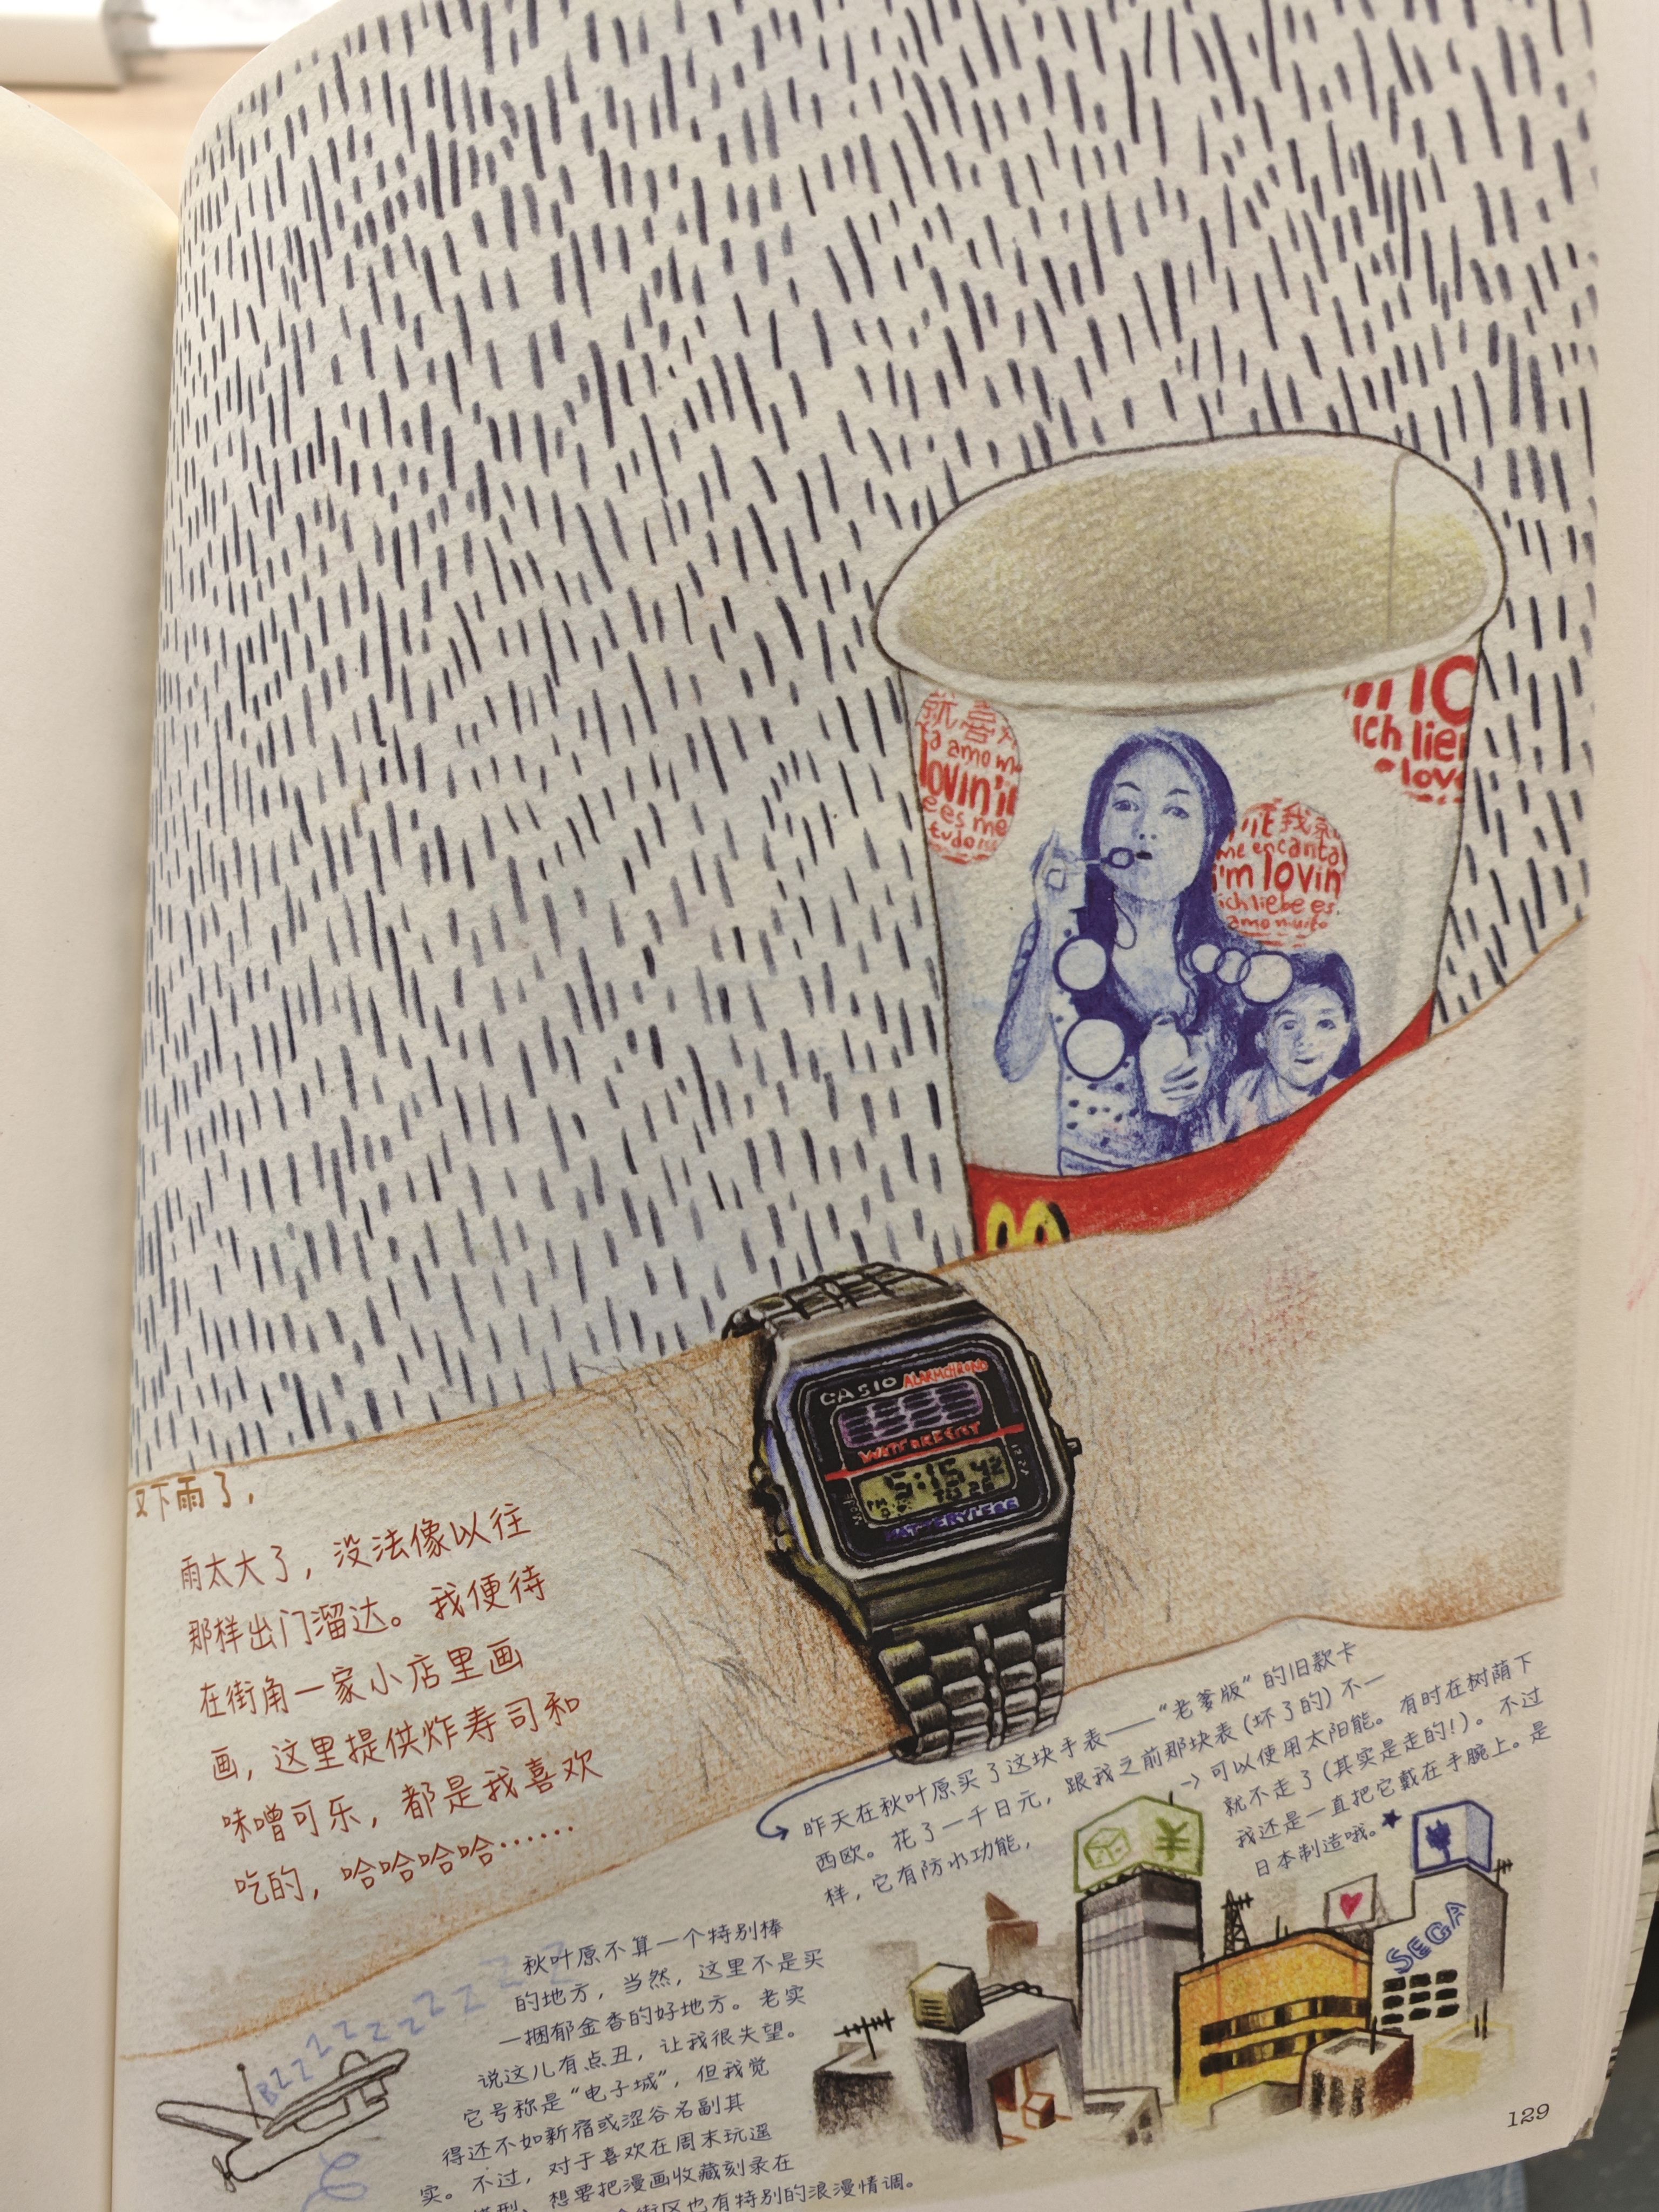 就喜
a amo m
lovin'it
e es me
tudo
ich lie
love
我
me encanta
i'm lovin
ich liebe es
amo muito
CASIO ALARM CHRONO
WATER RESIST
5:15 42
PM
BATTERYLESS
又下雨了,
雨太大了，没法像以往
那样出门溜达。我便待
在街角一家小店里画
画，这里提供炸寿司和
味噌可乐，都是我喜欢
吃的，哈哈哈哈……
昨天在秋叶原买了这块手表——“老爹版”的旧款卡
西欧。花了一千日元，跟我之前那块表(坏了的)不一
样，它有防水功能，
→可以使用太阳能。有时在树荫下
就不走了(其实是走的!)。不过
我还是一直把它戴在手腕上。是
日本制造哦。★
SEGA
秋叶原不算一个特别棒
的地方，当然，这里不是买
一捆郁金香的好地方。老实
说这儿有点丑，让我很失望。
它号称是“电子城”，但我觉
得还不如新宿或涩谷名副其
实。不过，对于喜欢在周末玩遥
模型、想要把漫画收藏刻录在
街区也有特别的浪漫情调。
BZZZZZZZZZZZ
129